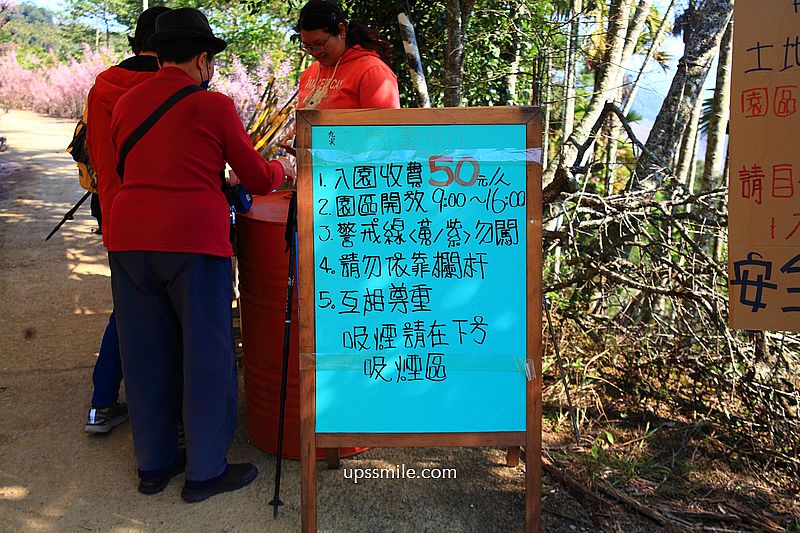 1. 入園收費50元/人
2. 園區開放9:00~16:00
3. 警戒線<黃/紫>勿闖
4. 請勿依靠欄杆
5. 互相尊重
吸煙請在下方
吸煙區
土地
園區
請目
安
upssmile.com